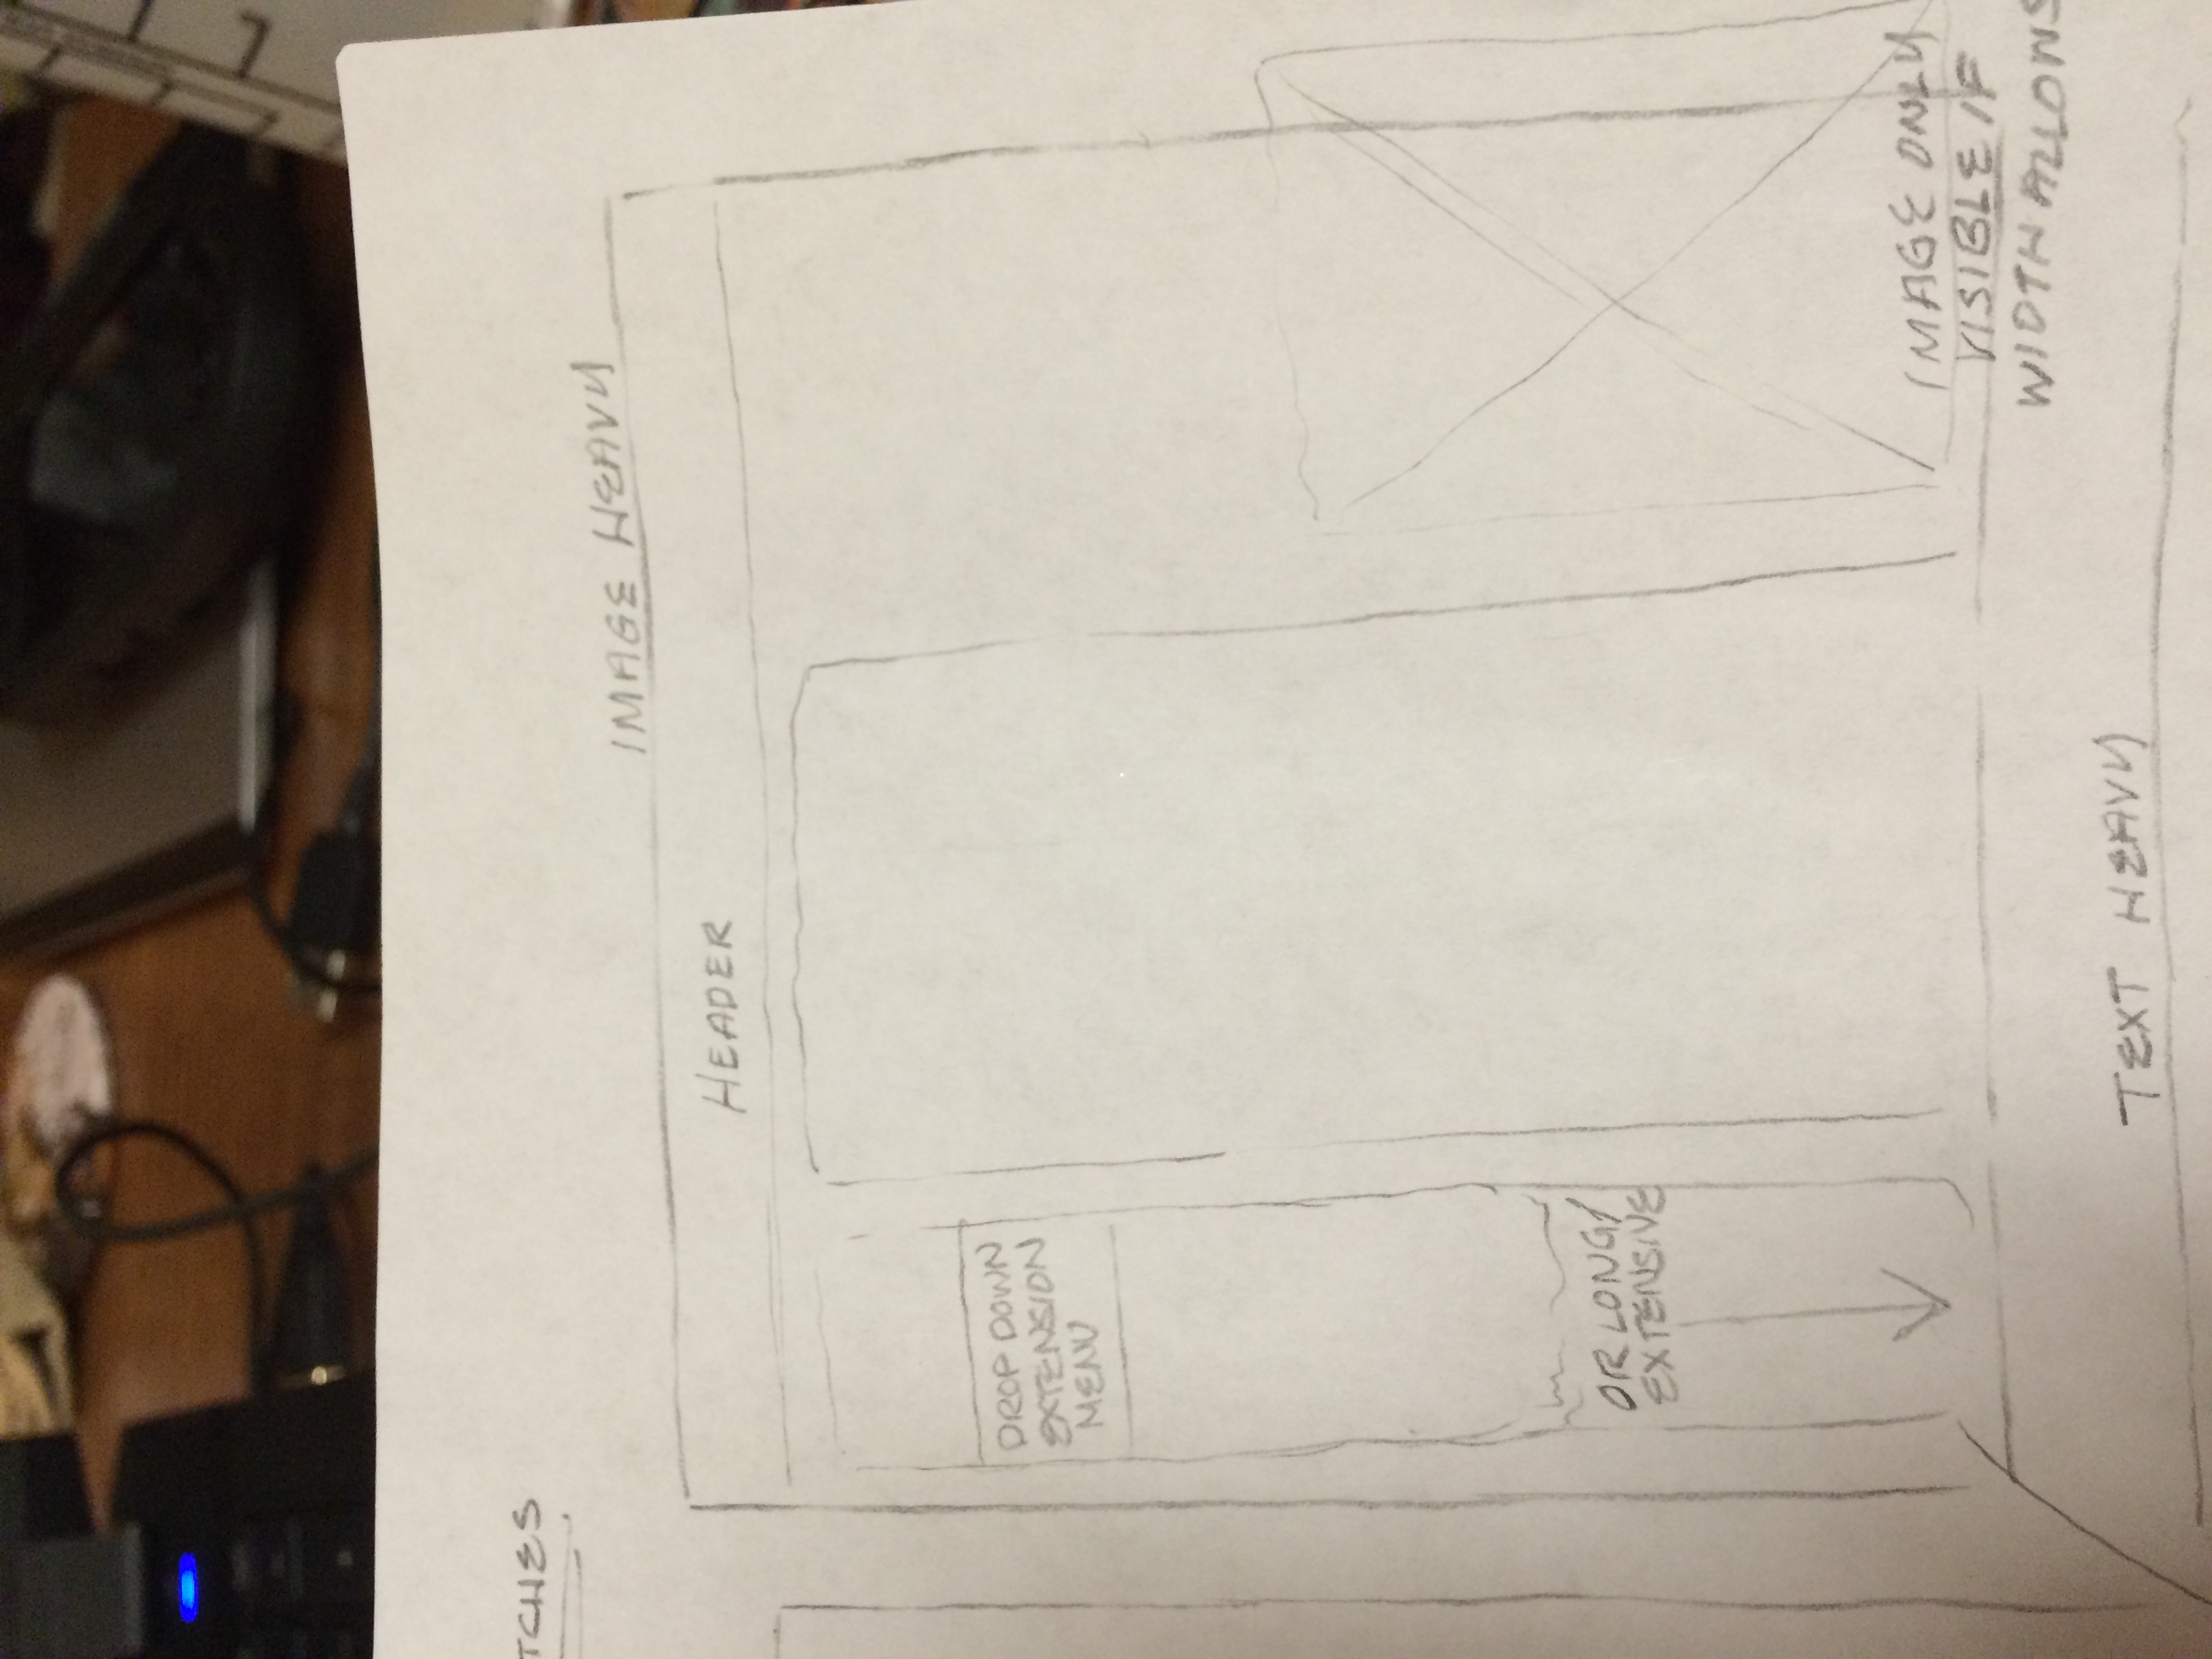 TCHES
IMAGE HEAVY
HEADER
DROP DOWN
EXTENSION
MENU
OR LONG/
EXTENSIVE
IMAGE ONLY
VISIBLE IF
WIDTH ALLOWS
TEXT HEAVY